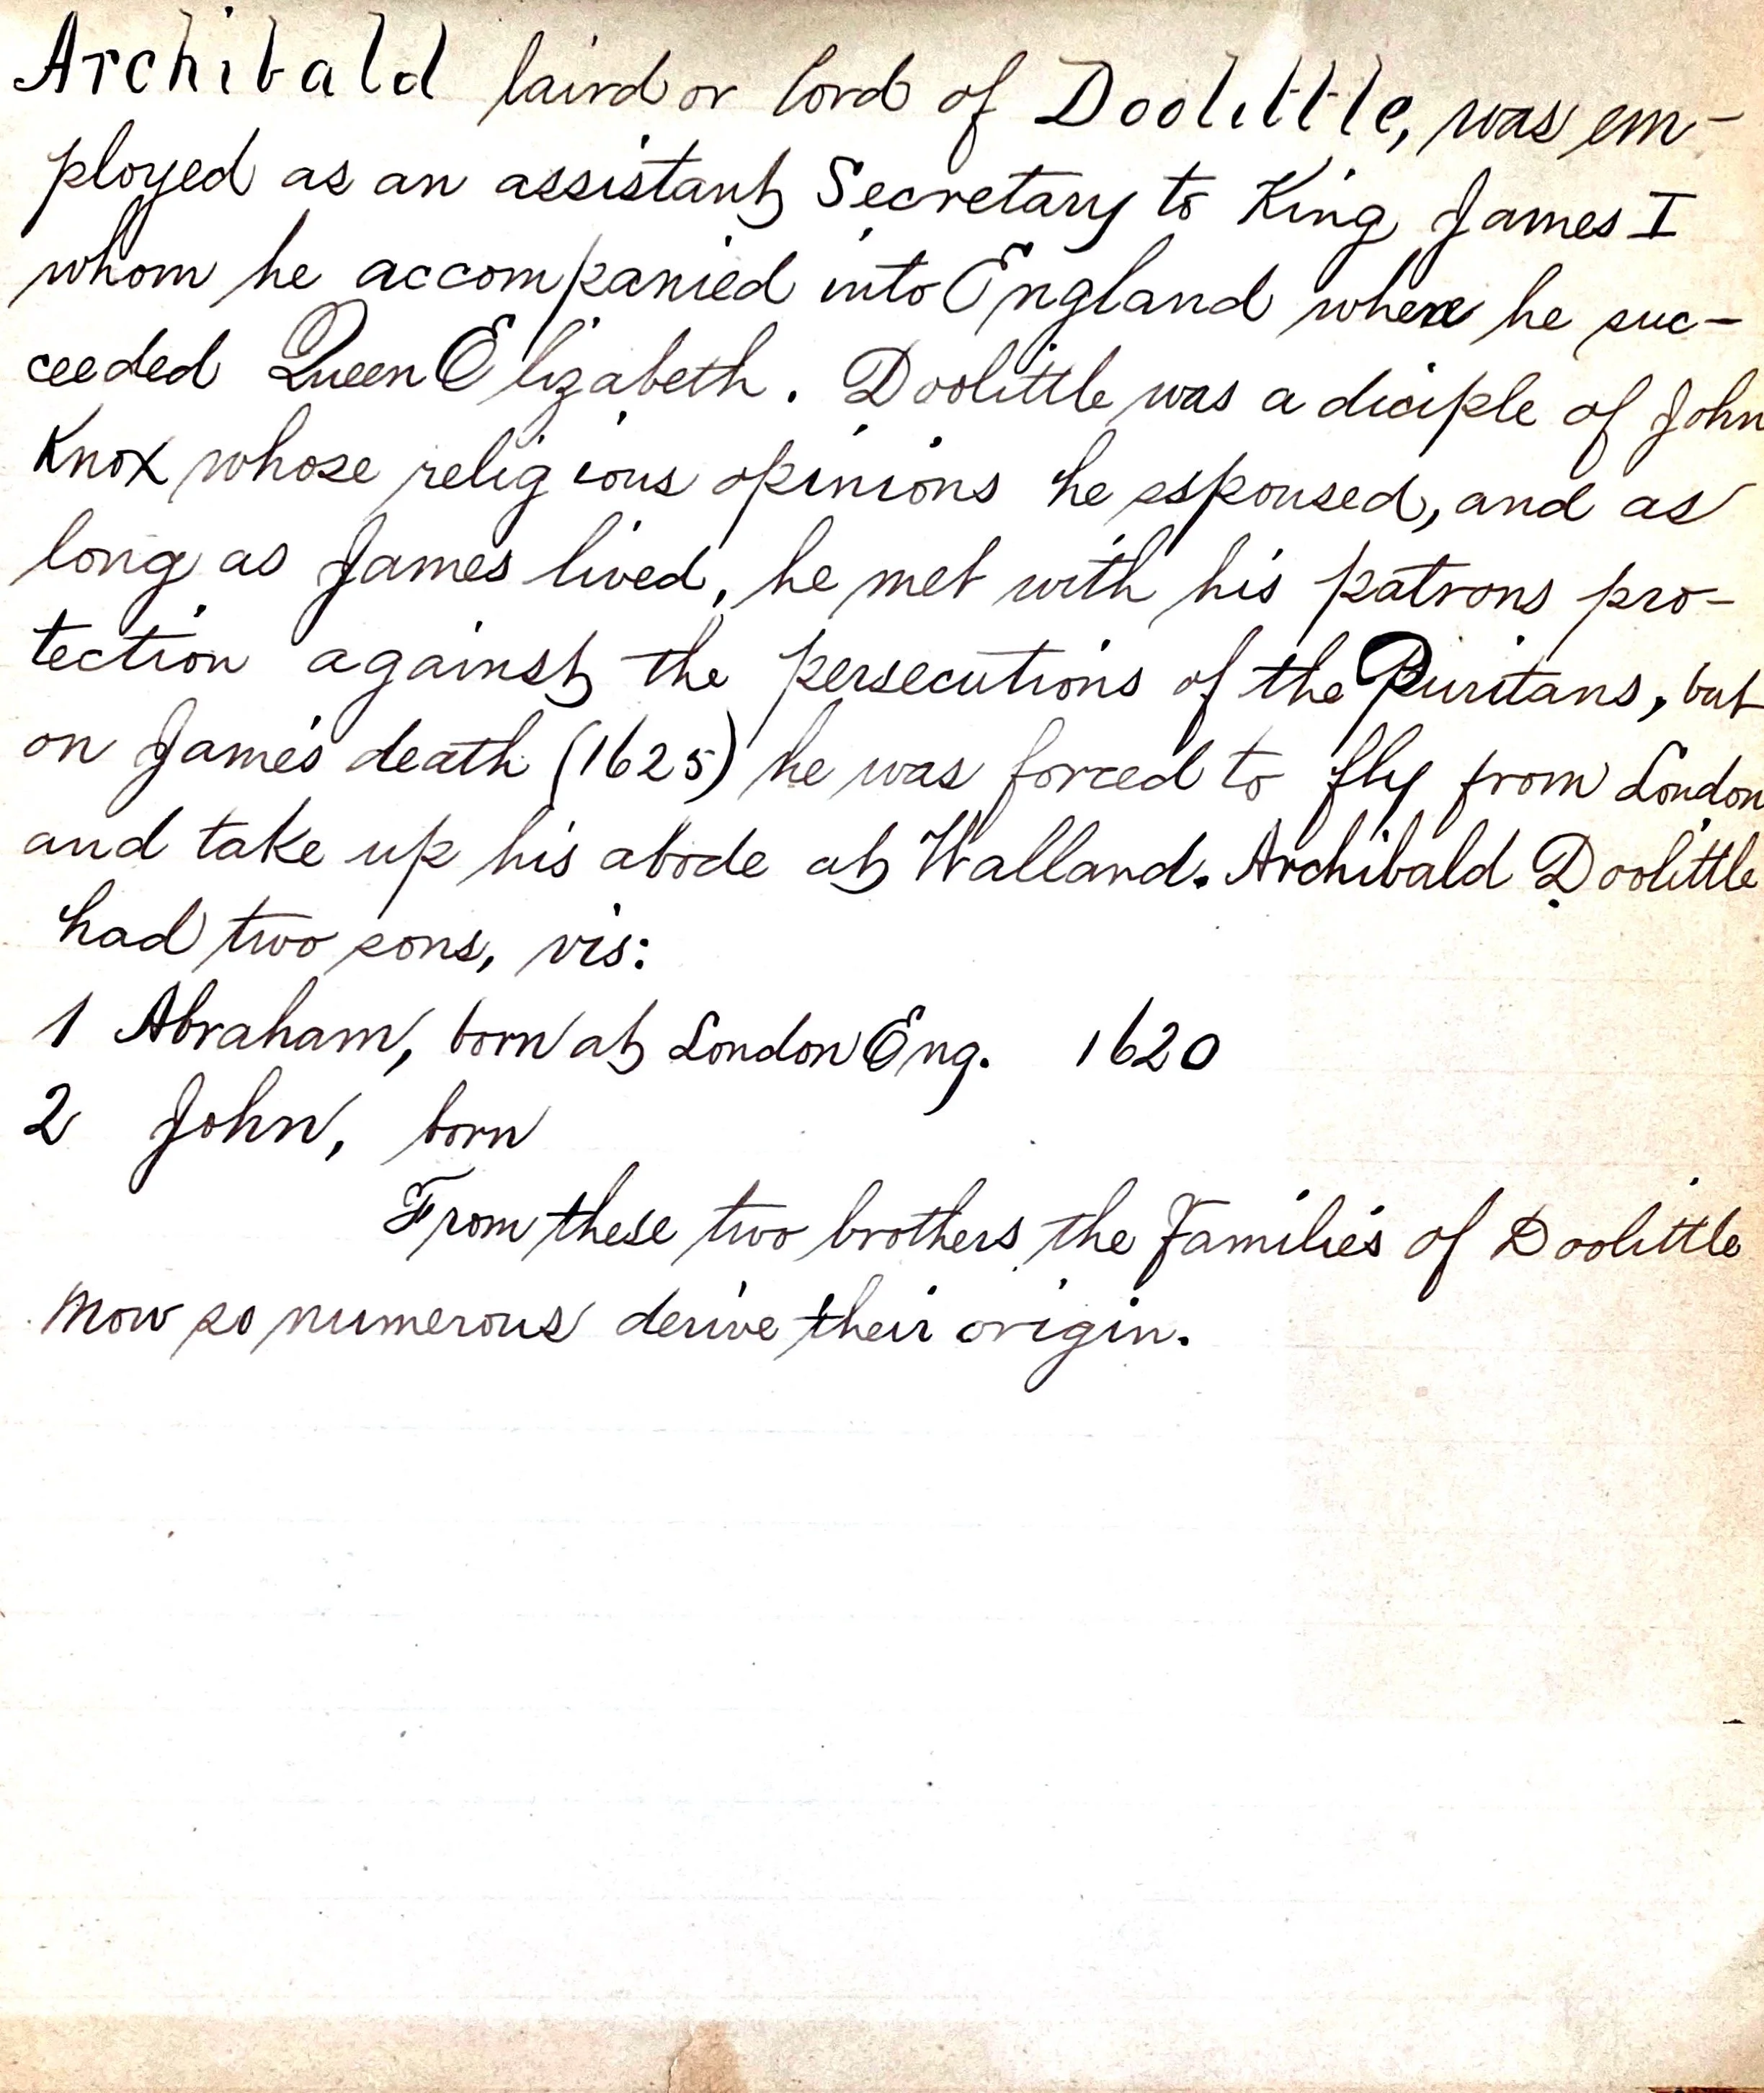 Archibald laird or lord of Doolittle, was em-
ployed as an assistant Secretary to King James I
whom he accompanied into England where he suc-
ceeded Queen Elizabeth. Doolittle was a diciple of John
Knox whose religious opinions he espoused, and as
long as James lived, he met with his patrons pro-
tection against the persecutions of the Puritans, but
on James death (1625) he was forced to fly from London
and take up his abode at Walland. Archibald Doolittle
had two sons, vis:
1 Abraham, born at London Eng. 1620
2 John, born
From these two brothers the Families of Doolittle
now so numerous derive their origin.